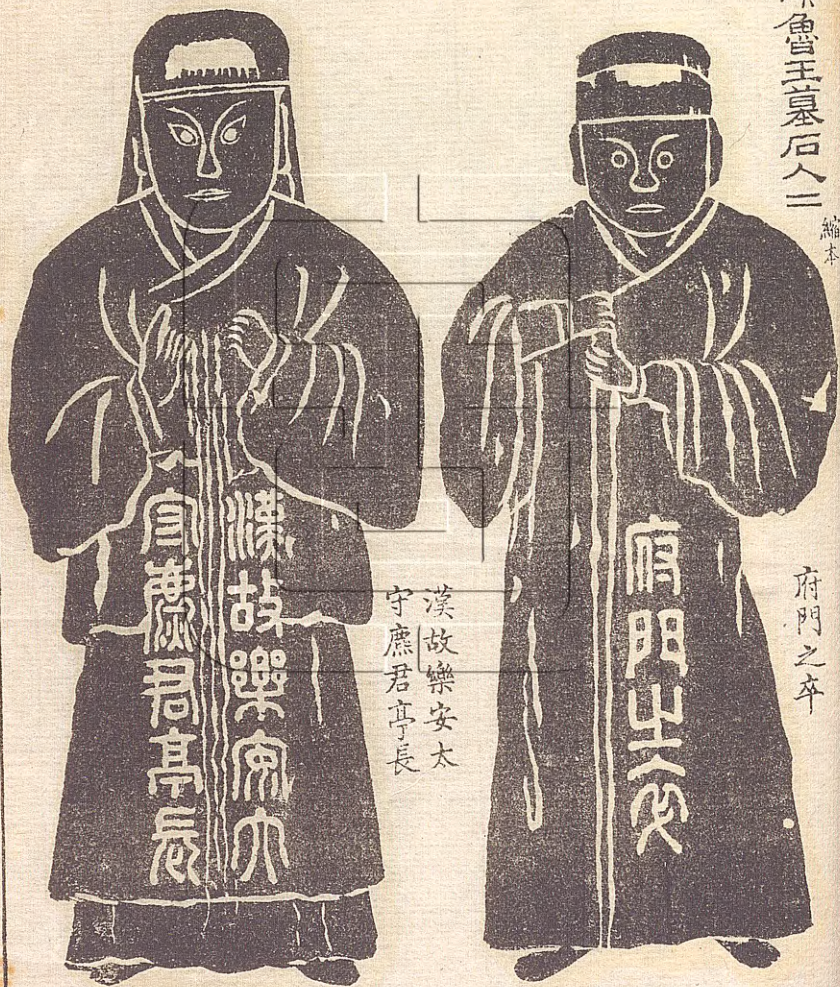 魯王墓石人二
縮本
府門之卒
府門之卒
漢故樂安太
守麃君亭長
漢故樂安太
守麃君亭長